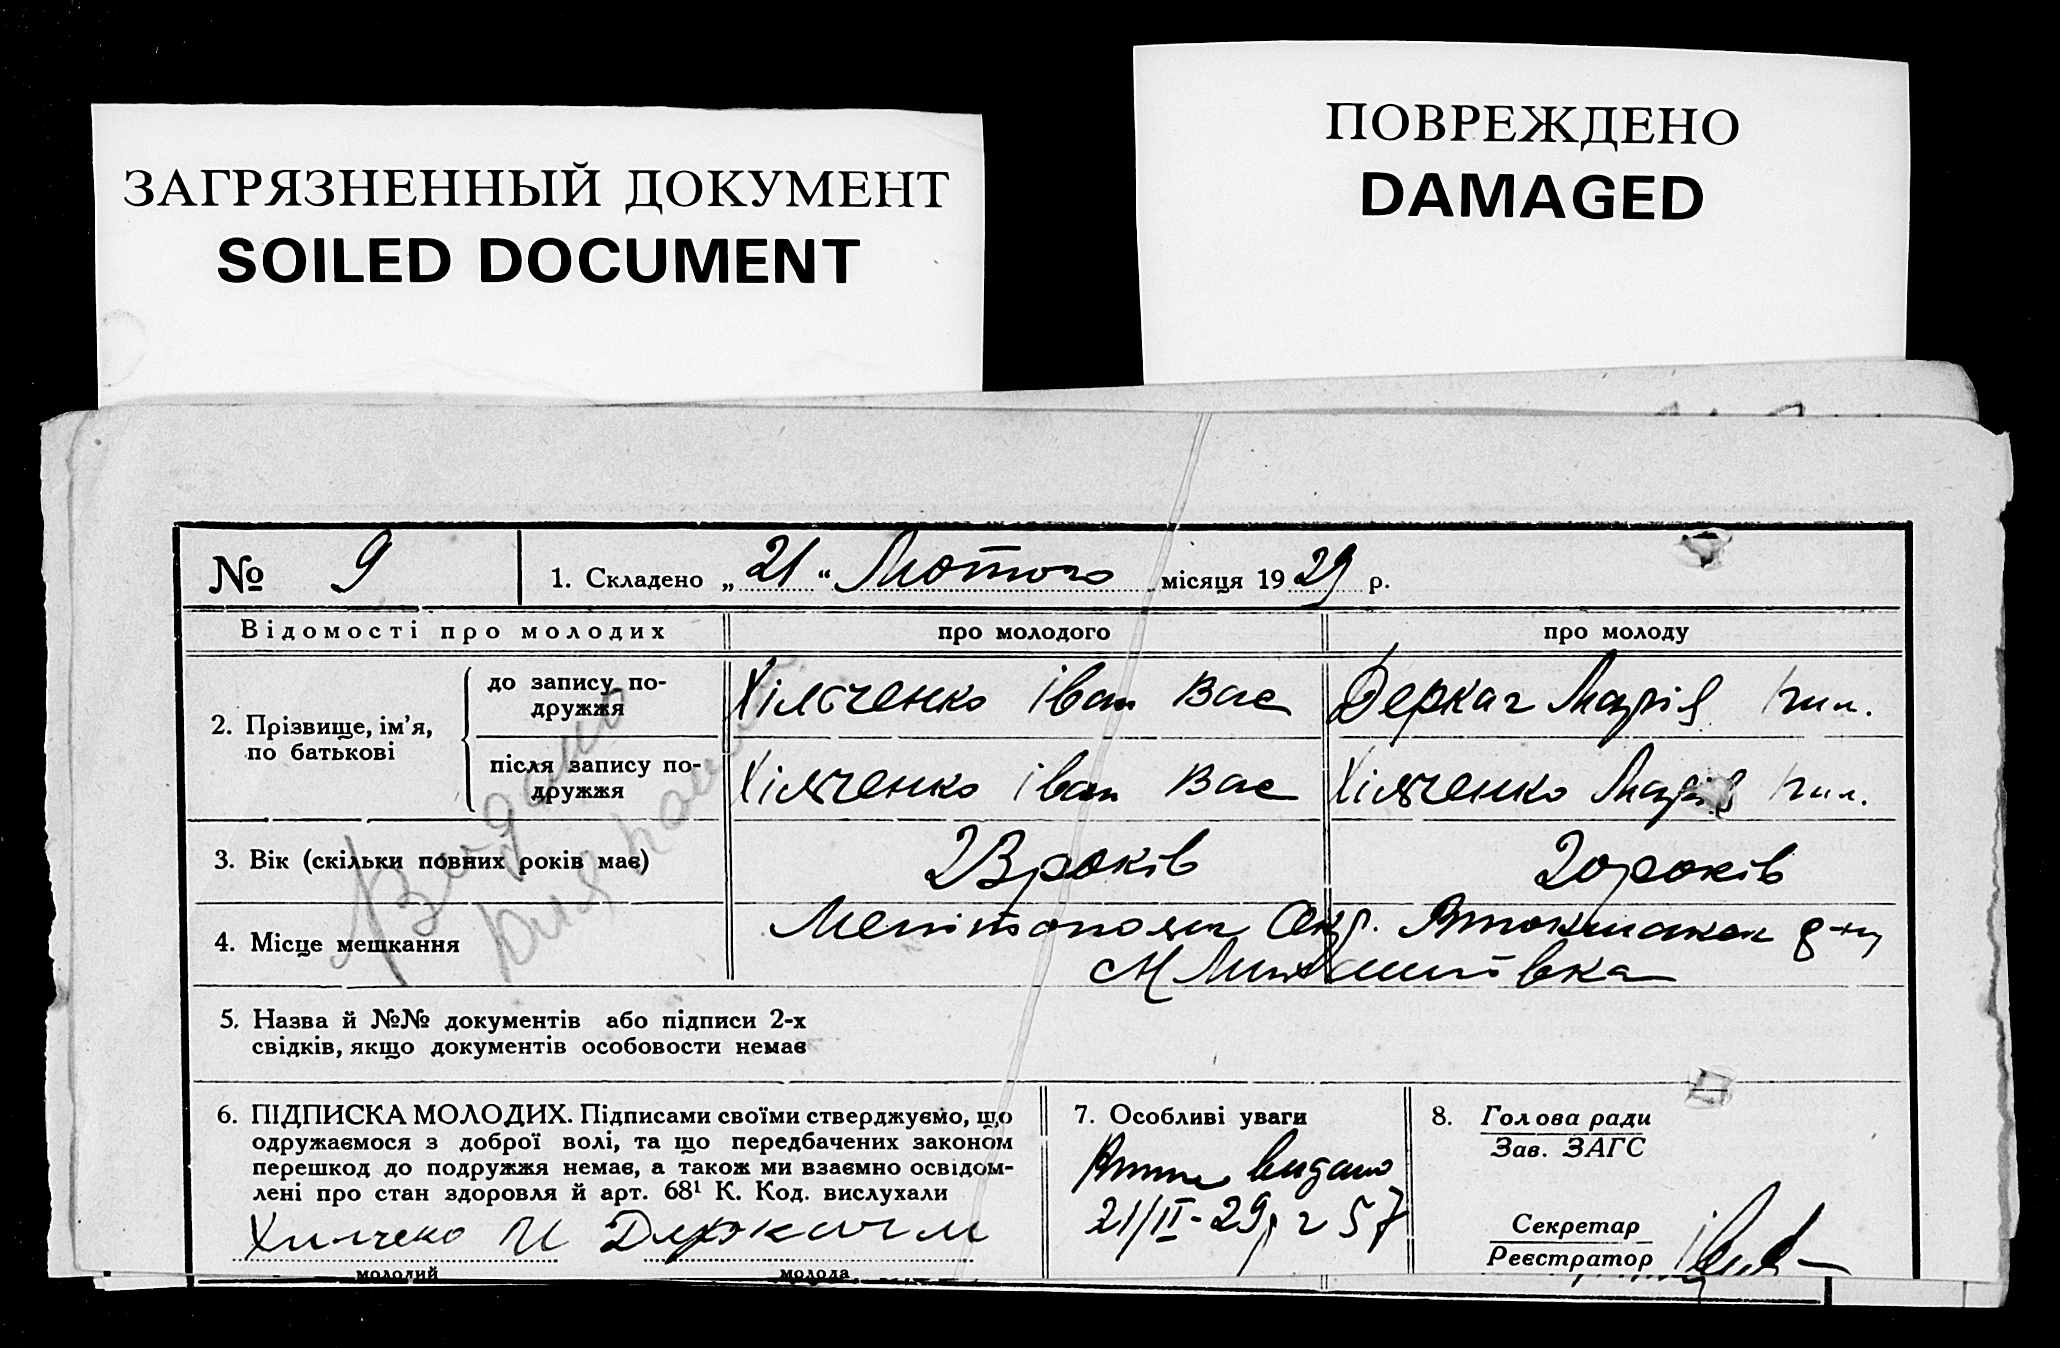 ЗАГРЯЗНЕННЫЙ ДОКУМЕНТ
SOILED DOCUMENT
ПОВРЕЖДЕНО
DAMAGED
№ 9
1. Складено „21“ Лютого місяця 1929 р.
Відомості про молодих
про молодого
про молоду
2. Прізвище, ім’я, по батькові
до запису по-
дружжя
Хільченко Іван Вас
Деркач Марія
після запису по-
дружжя
Хільченко Іван Вас
Хільченко Марія
3. Вік (скільки повних років має)
23 років
20 років
4. Місце мешкання
Мелітополя Окр. р-ну
Видано
5. Назва й №№ документів або підписи 2-х
свідків, якщо документів особовости немає
6. ПІДПИСКА МОЛОДИХ. Підписами своїми стверджуємо, що
одружаємося з доброї волі, та що передбачених законом
перешкод до подружжя немає, а також ми взаємно освідом-
лені про стан здоровля й арт. 68¹ К. Код. вислухали
Хилчеко И Деркач М
молодий
молода
7. Особливі уваги
видано
21/II-29р 57
8. Голова ради
Зав. ЗАГС
Секретар
Реєстратор